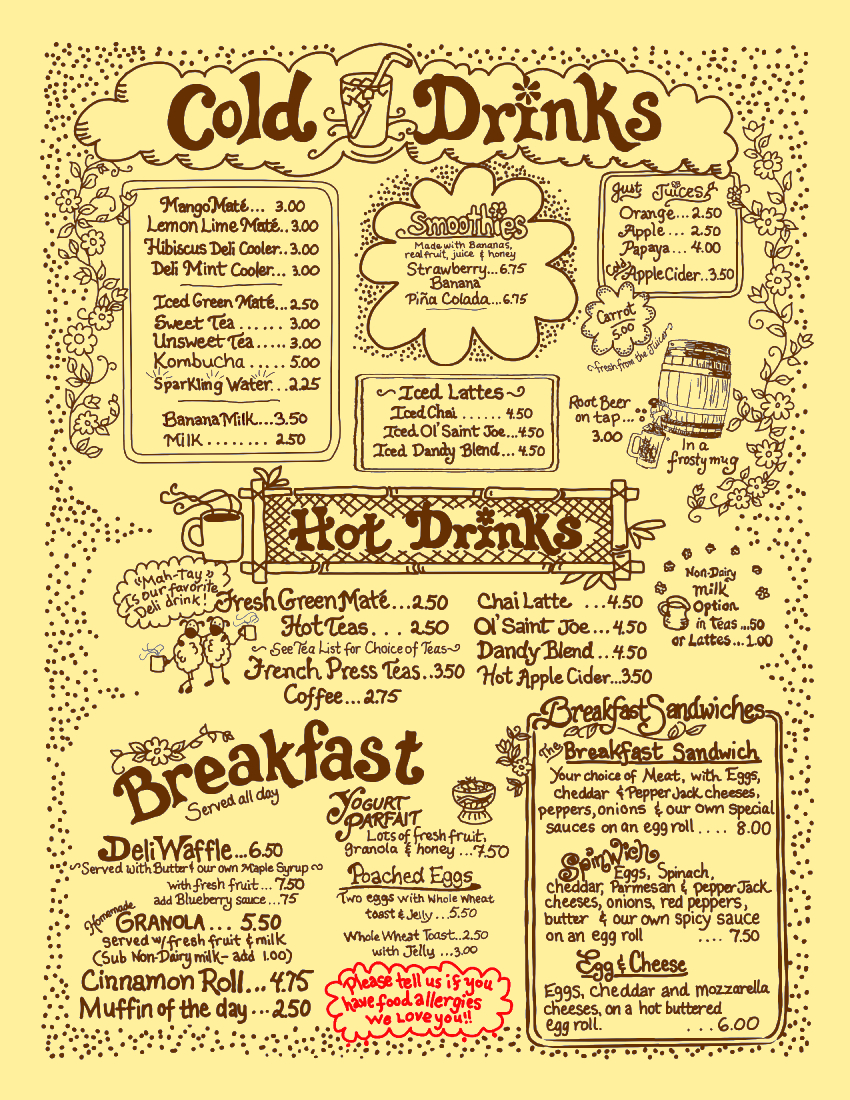 Cold Drinks
Mango Maté... 3.00
Lemon Lime Maté..3.00
Hibiscus Deli Cooler...3.00
Deli Mint Cooler... 3.00
Iced Green Maté...2.50
Sweet Tea ...... 3.00
Unsweet Tea ..... 3.00
Kombucha .... 5.00
Sparkling Water...2.25
Banana Milk...3.50
Milk ........ 2.50
Smoothies
Made with Bananas,
real fruit, juice & honey
Strawberry...6.75
Banana
Piña Colada....6.75
Just Juices!
Orange...2.50
Apple... 2.50
Papaya... 4.00
Cold Apple Cider..3.50
Carrot
5.00
~fresh from the Juicer~
Iced Lattes
Iced Chai ...... 4.50
Iced Ol' Saint Joe...4.50
Iced Dandy Blend... 4.50
Root Beer
on tap...
3.00
In a
frosty mug
Hot Drinks
"Mah-Tay"
Is our favorite
Deli drink!
Fresh Green Maté...2.50
Hot Teas... 2.50
~See Tea List for Choice of Teas~
French Press Teas..3.50
Coffee... 2.75
Chai Latte ...4.50
Ol' Saint Joe...4.50
Dandy Blend...4.50
Hot Apple Cider...3.50
Non-Dairy
Milk
Option
in Teas...50
or Lattes...1.00
Breakfast
Served all day
Deli Waffle...6.50
~Served with Butter & our own Maple Syrup~
with fresh fruit...7.50
add Blueberry sauce...75
Homemade
GRANOLA... 5.50
served w/fresh fruit & milk
(Sub Non-Dairy milk- add 1.00)
Cinnamon Roll...4.75
Muffin of the day...2.50
YOGURT
PARFAIT
Lots of fresh fruit,
granola & honey...7.50
Poached Eggs
Two eggs with whole wheat
toast & Jelly...5.50
Whole Wheat Toast..2.50
with Jelly ...3.00
Please tell us if you
have food allergies
We Love you!!
Breakfast Sandwiches
The Breakfast Sandwich
Your choice of Meat, with Eggs,
cheddar & Pepper Jack cheeses,
peppers, onions & our own special
sauces on an egg roll .... 8.00
Spinwich
Eggs, Spinach,
cheddar, Parmesan & pepper Jack
cheeses, onions, red peppers,
butter & our own spicy sauce
on an egg roll .... 7.50
Egg & Cheese
Eggs, cheddar and mozzarella
cheeses, on a hot buttered
egg roll. ...6.00